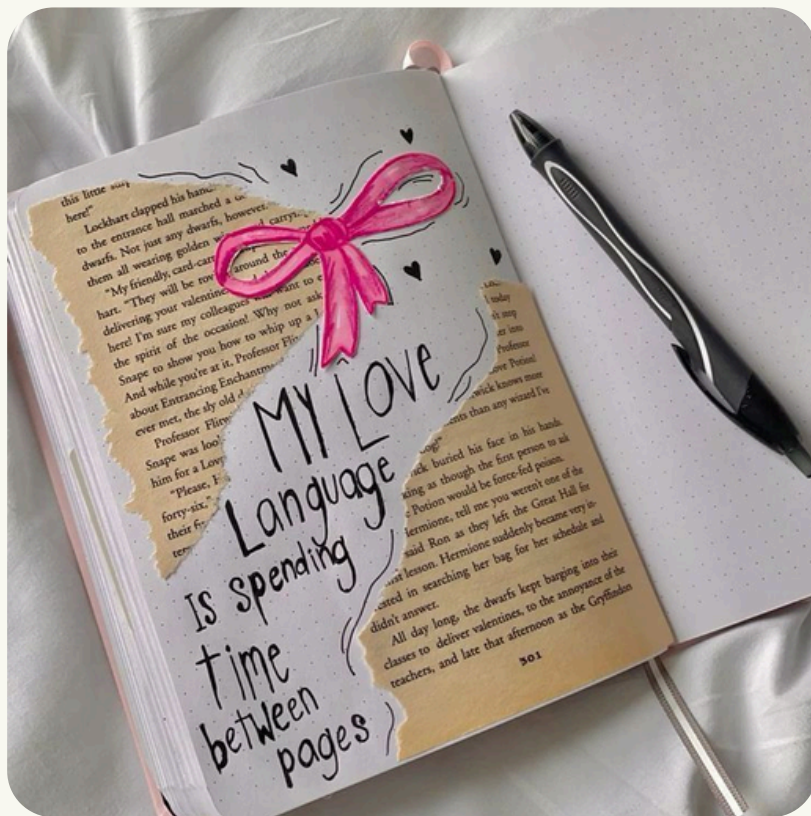 this little
here!"
Lockhart clapped his
to the entrance hall marched a
dwarfs. Not just any dwarfs, however.
them all wearing golden carrying
"My friendly, card-
hart. "They will be around the
delivering your valentines
here! I'm sure my colleagues want to
the spirit of the occasion! Why not ask
Snape to show you how to whip up a
And while you're at it, Professor
about Entrancing
ever met, the sly old
Professor
Snape was
him for a
"Please,
forty-six,"
their
MY LOVE
Language
Is spending
time
between
pages
today
stop
into
Professor
Potion!
knows more
than any wizard I've
buried his face in his hands.
as though the first person to ask
Potion would be force-fed poison.
tell me you weren't one of the
said Ron as they left the Great Hall for
lesson. Hermione suddenly became very in-
in searching her bag for her schedule and
didn't answer.
All day long, the dwarfs kept barging into their
classes to deliver valentines, to the annoyance of the
teachers, and late that afternoon as the Gryffindors
301